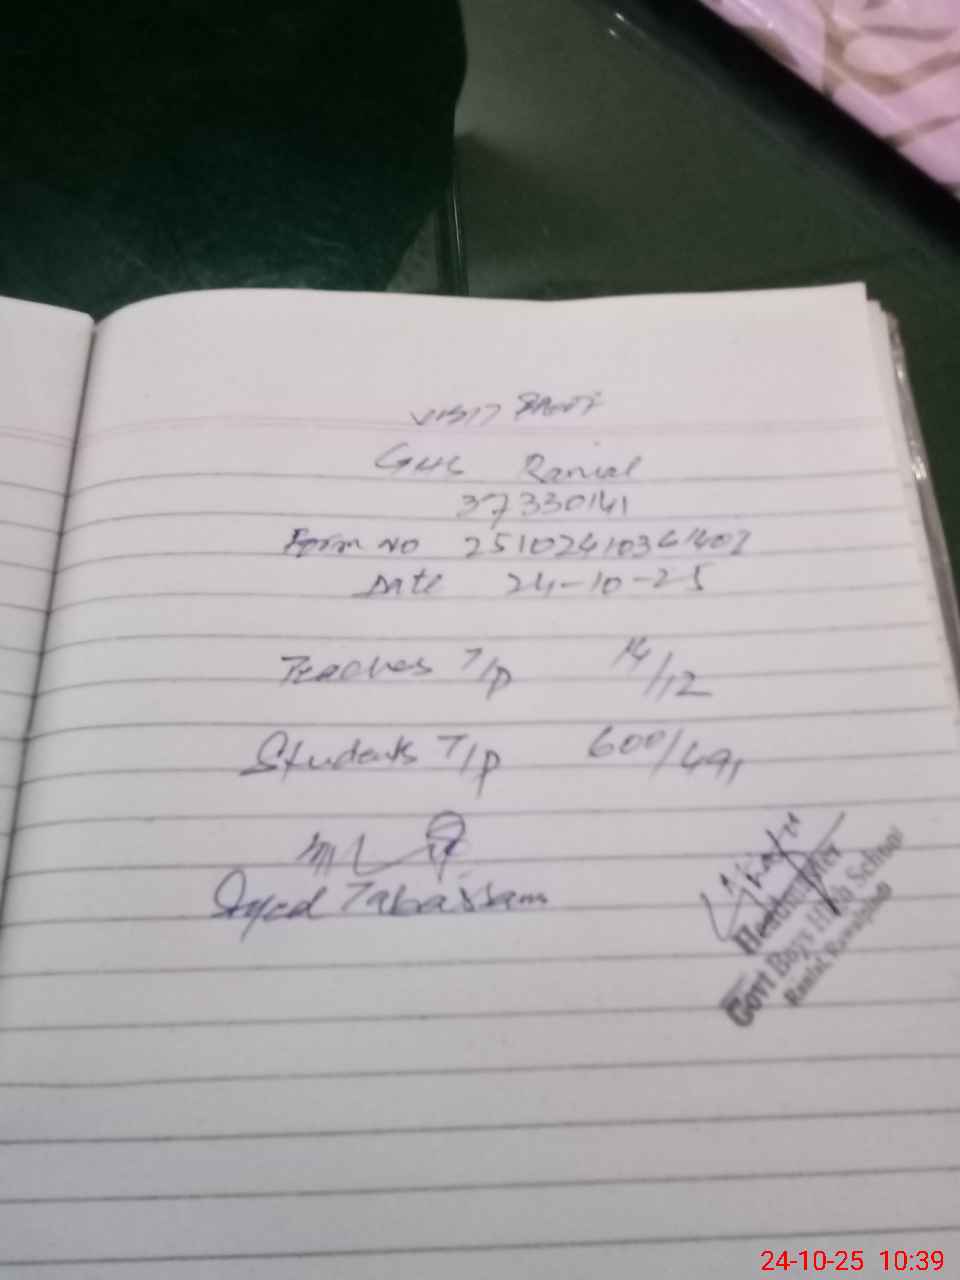 VISIT
GHS Ranial
37330141
Form NO
Date 24-10-25
Teaches T/P 14/12
Students T/P 600/491
Syed Tabassam
Headmaster
Govt Boys High School
Ranial, Rawalpindi
24-10-25 10:39